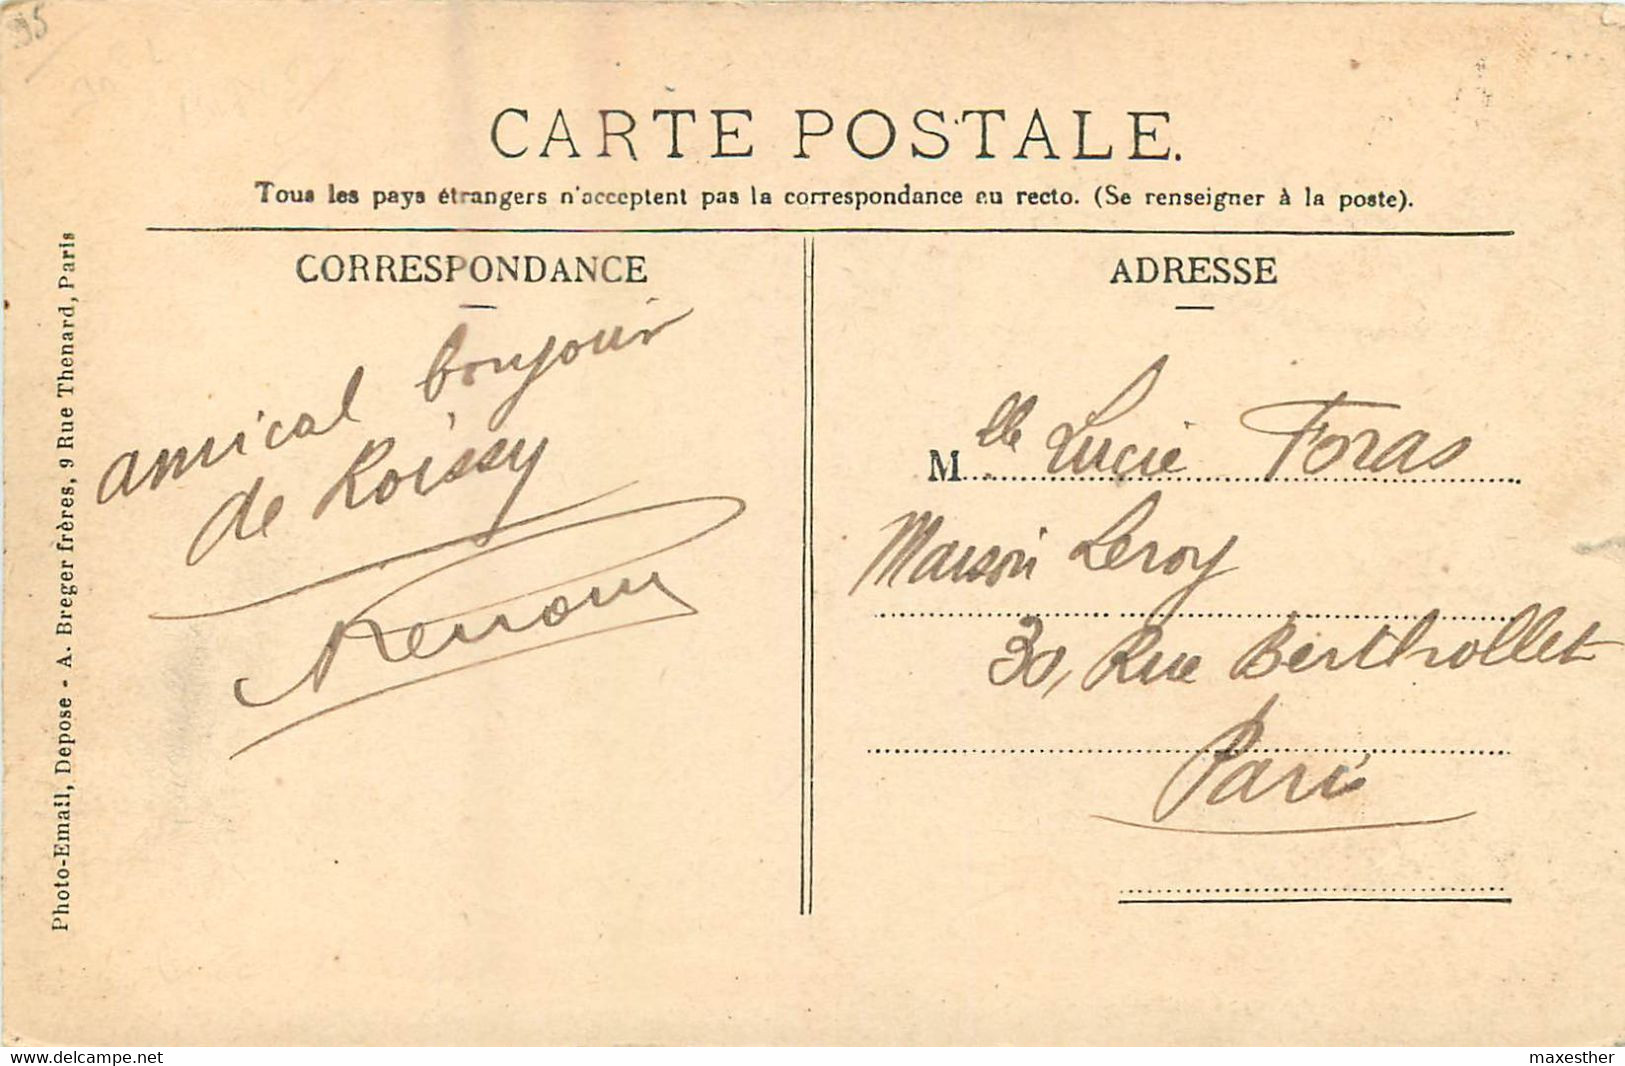 95
CARTE POSTALE.
Tous les pays étrangers n'acceptent pas la correspondance au recto. (Se renseigner à la poste).
CORRESPONDANCE
amical bonjour
de Roissy
ADRESSE
Mlle Lucie Foras
Maison Leroy
30, Rue Berthollet
Paris
Photo-Email, Depose - A. Breger frères, 9 Rue Thenard, Paris
www.delcampe.net
maxesther